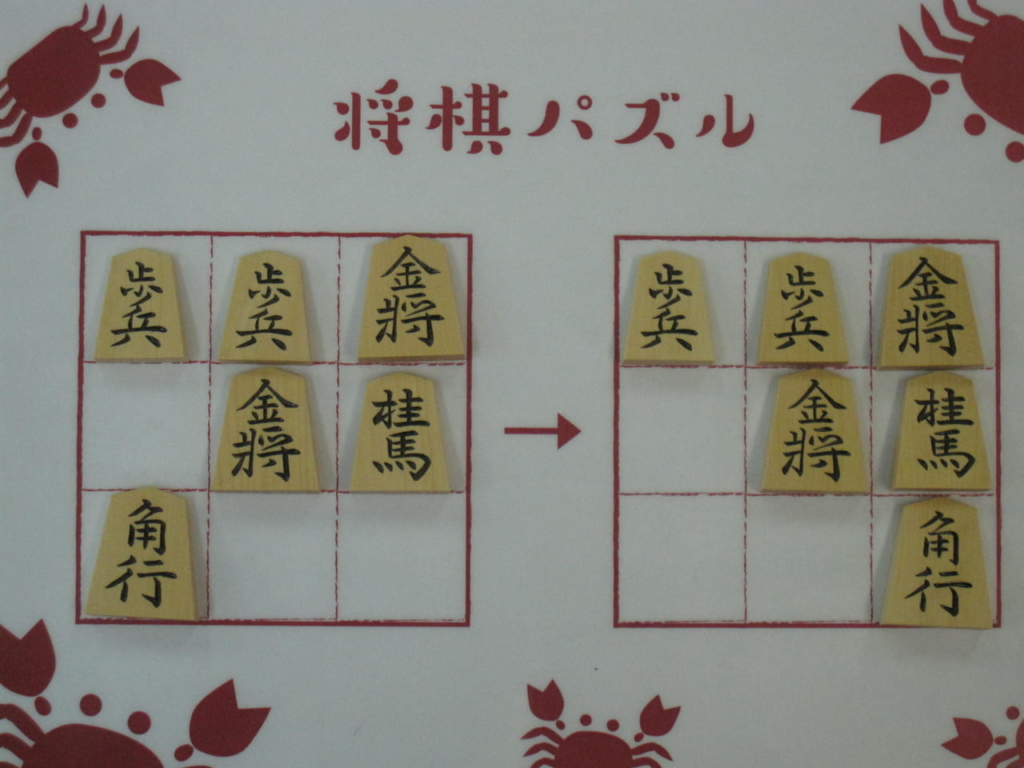 将棋パズル
歩兵 歩兵 金将
金将 桂馬
角行
歩兵 歩兵 金将
金将 桂馬
角行